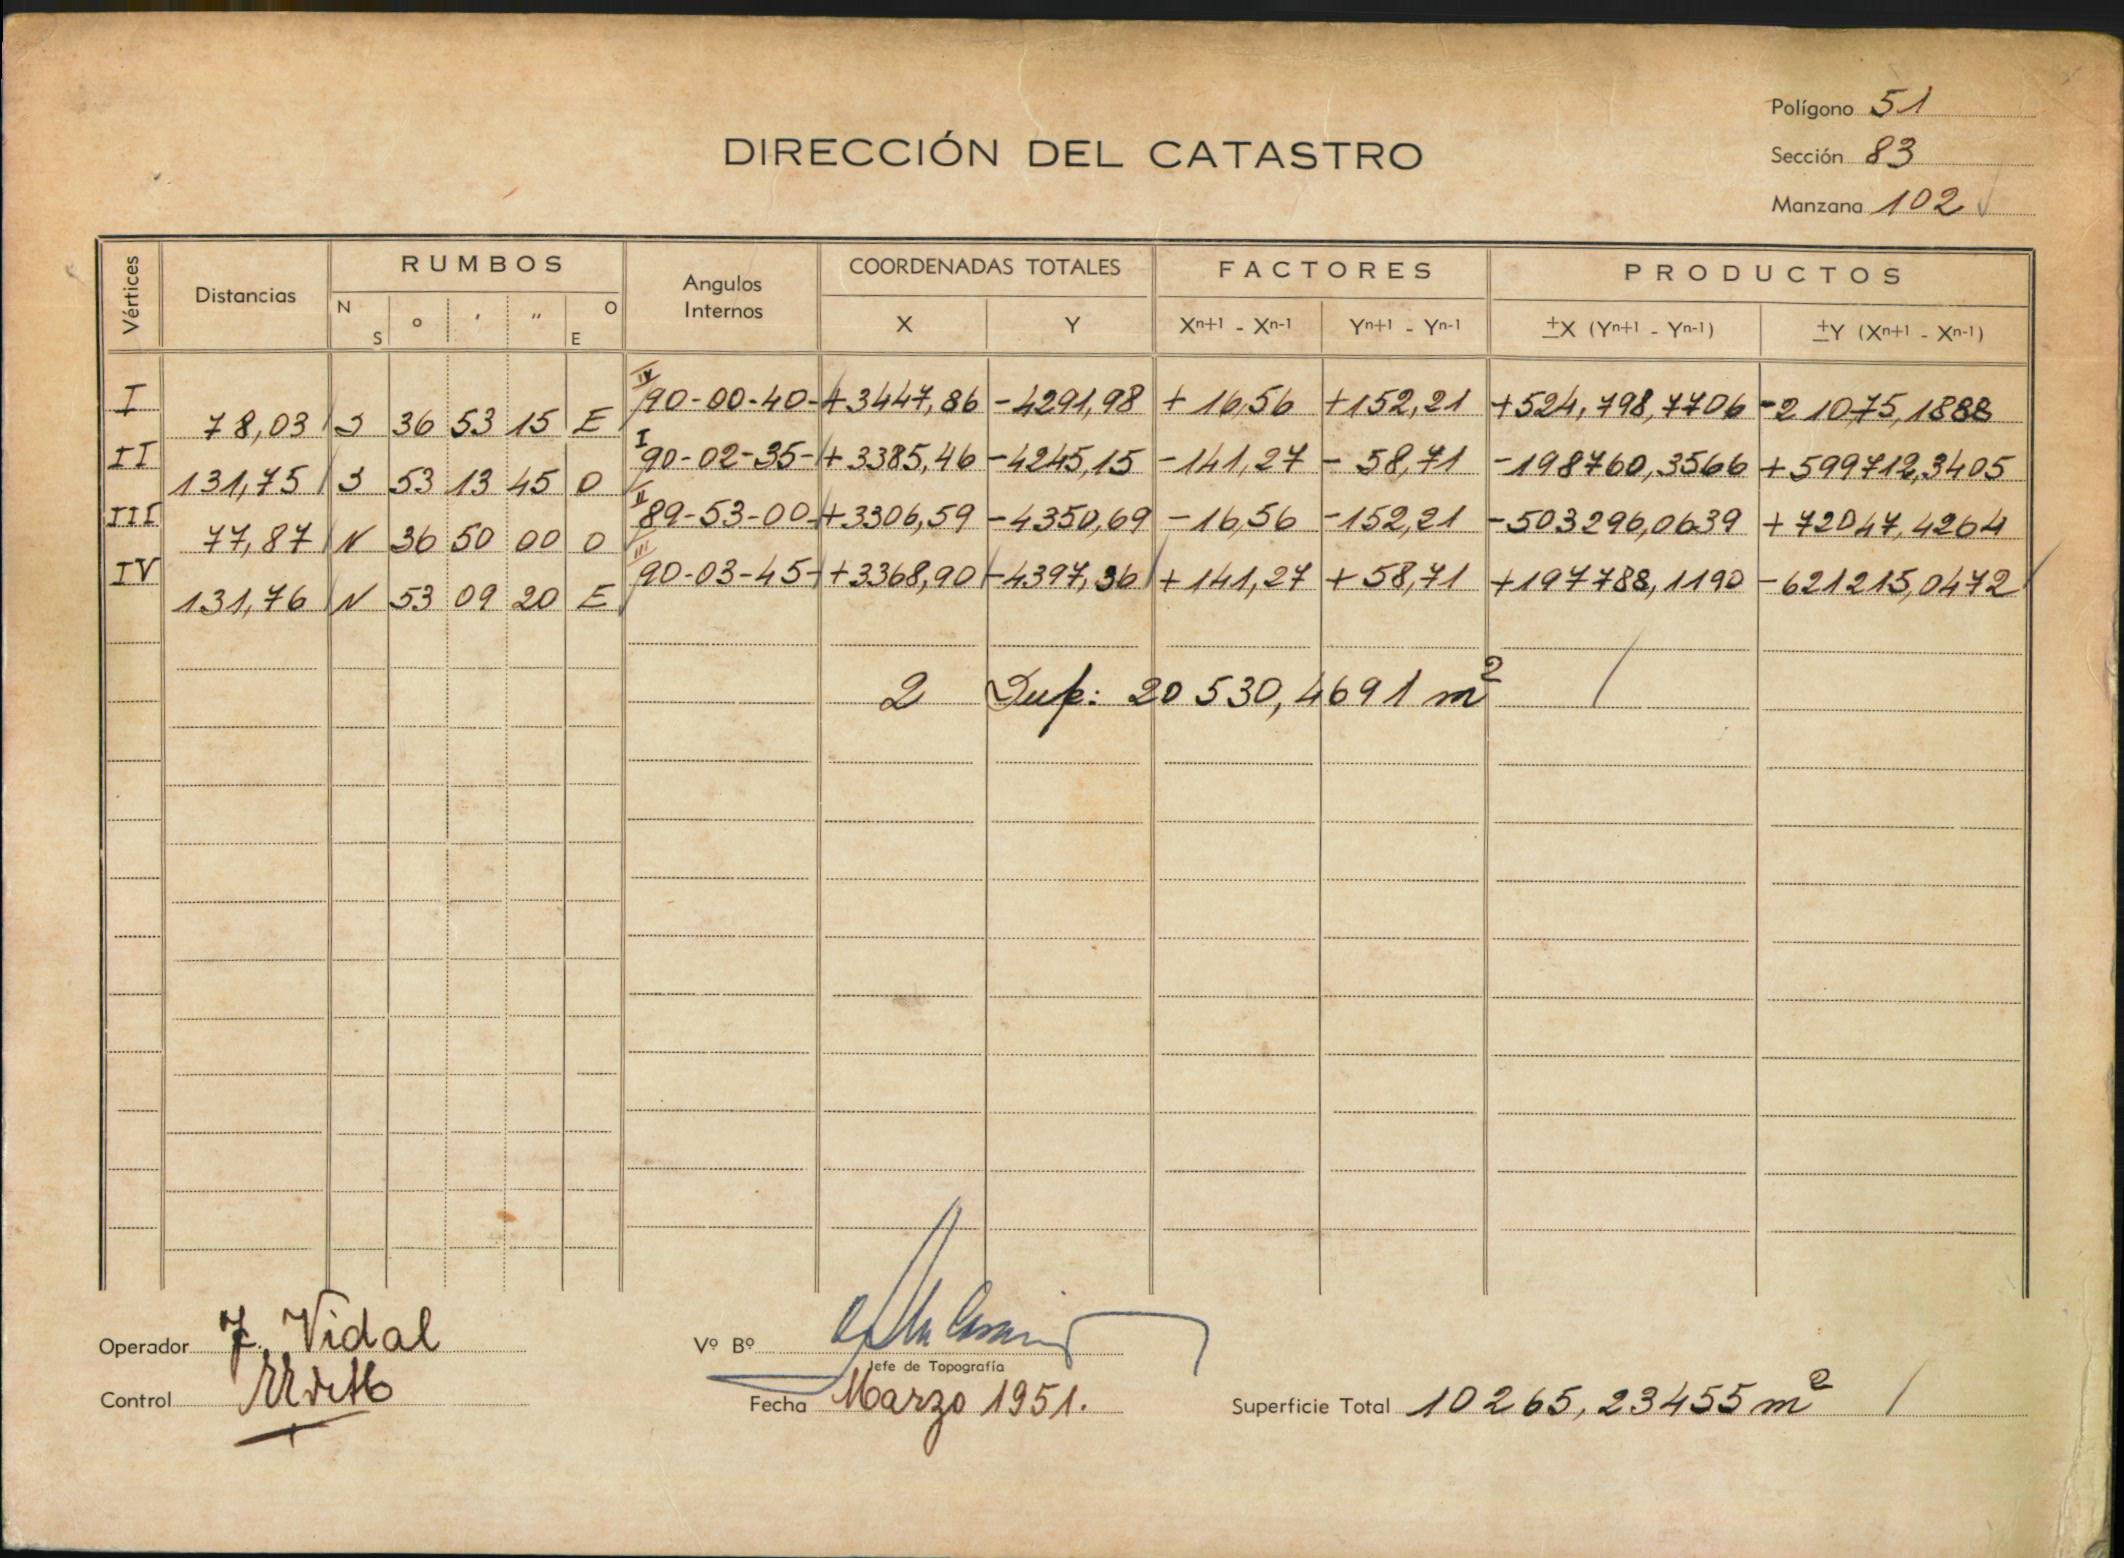 Polígono 51
DIRECCIÓN DEL CATASTRO
Sección 83
Manzana 102
Vértices Distancias RUMBOS Angulos Internos COORDENADAS TOTALES FACTORES PRODUCTOS
N S ° ′ ″ E O X Y Xn+1 - Xn-1 Yn+1 - Yn-1 ±X (Yn+1 - Yn-1) ±Y (Xn+1 - Xn-1)
I 78,03 S 36 53 15 E IV 90-00-40- +3447,86 -4291,98 +16,56 +152,21 +524,798,7706 -21075,1888
II 131,75 S 53 13 45 O I 90-02-35- +3385,46 -4245,15 -141,27 -58,71 -198760,3566 +599712,3405
III 77,87 N 36 50 00 O II 89-53-00- +3306,59 -4350,69 -16,56 -152,21 -503296,0639 +72047,4264
IV 131,76 N 53 09 20 E III 90-03-45- +3368,90 -4397,36 +141,27 +58,71 +197788,1190 -621215,0472
2 Sup: 20 530,4691 m²
Operador J. Vidal
Vº Bº
Jefe de Topografía
Control
Fecha Marzo 1951.
Superficie Total 10265,23455 m²